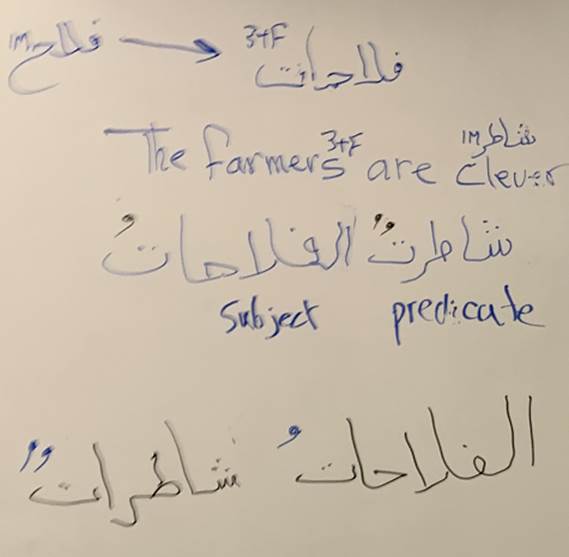 فلاح 1M → فلاحات 3+F
3+F شاطر 1M
The farmers are clever
شاطرتٌ الفلاحاتُ
subject predicate
الفلاحاتُ شاطراتٌ